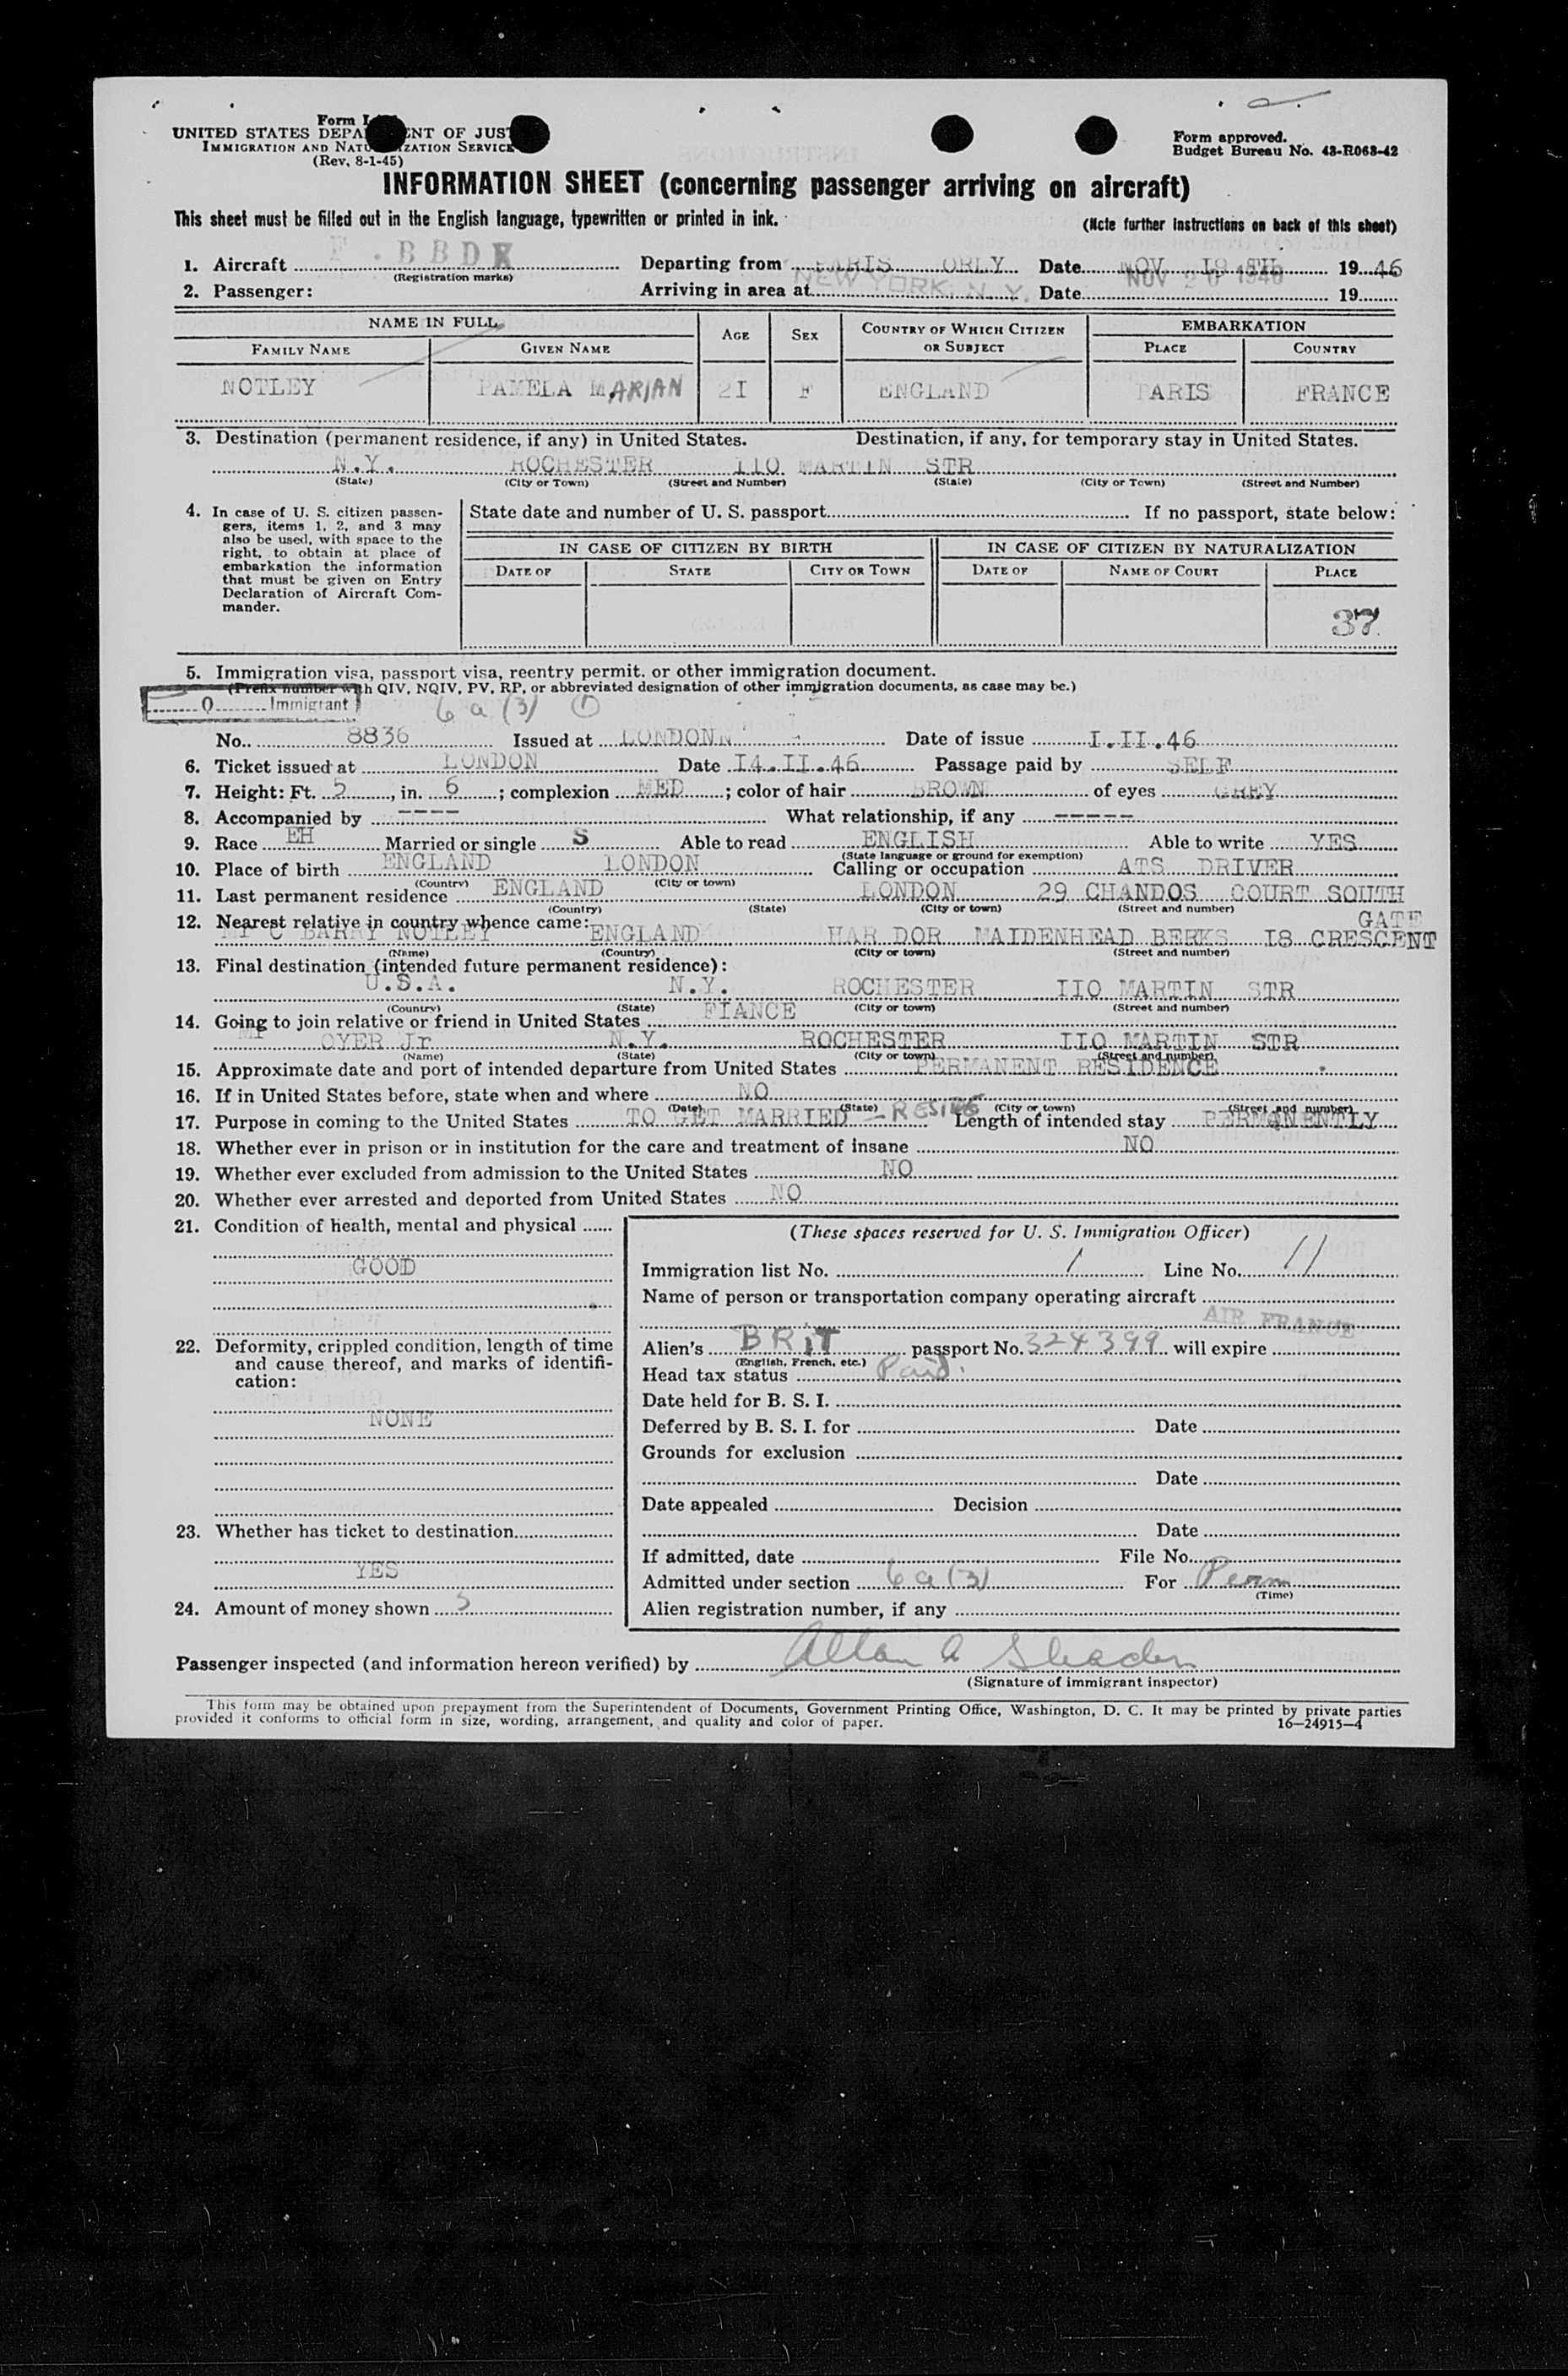 Form I
UNITED STATES DEPA ENT OF JUST
IMMIGRATION AND NATU IZATION SERVICE
(Rev. 8-1-45)
Form approved.
Budget Bureau No. 43-R063-42
INFORMATION SHEET (concerning passenger arriving on aircraft)
This sheet must be filled out in the English language, typewritten or printed in ink.
(Note further instructions on back of this sheet)
1. Aircraft F . BBDK Departing from PARIS ORLY Date NOV 19 TH 19 46
(Registration marks)
2. Passenger: Arriving in area at NEW YORK, N. Y. Date NOV 20 1946 19
NAME IN FULL AGE SEX COUNTRY OF WHICH CITIZEN OR SUBJECT EMBARKATION
FAMILY NAME GIVEN NAME PLACE COUNTRY
NOTLEY PAMELA MARIAN 2I F ENGLAND PARIS FRANCE
3. Destination (permanent residence, if any) in United States. Destination, if any, for temporary stay in United States.
N.Y. ROCHESTER IIO MARTIN STR
(State) (City or Town) (Street and Number) (State) (City or Town) (Street and Number)
4. In case of U. S. citizen passen-
gers, items 1, 2, and 3 may
also be used, with space to the
right, to obtain at place of
embarkation the information
that must be given on Entry
Declaration of Aircraft Com-
mander.
State date and number of U. S. passport If no passport, state below:
IN CASE OF CITIZEN BY BIRTH IN CASE OF CITIZEN BY NATURALIZATION
DATE OF STATE CITY OR TOWN DATE OF NAME OF COURT PLACE
37
5. Immigration visa, passport visa, reentry permit, or other immigration document.
(Prefix number with QIV, NQIV, PV, RP, or abbreviated designation of other immigration documents, as case may be.)
Q Immigrant 6 a (3) 1
No. 8836 Issued at LONDON Date of issue I.II.46
6. Ticket issued at LONDON Date I4.II.46 Passage paid by SELF
7. Height: Ft. 5, in. 6; complexion MED; color of hair BROWN of eyes GREY
8. Accompanied by ---- What relationship, if any -----
9. Race EH Married or single S Able to read ENGLISH Able to write YES
(State language or ground for exemption)
10. Place of birth ENGLAND LONDON Calling or occupation ATS DRIVER
(Country) (City or town)
11. Last permanent residence ENGLAND LONDON 29 CHANDOS COURT SOUTH
(Country) (State) (City or town) (Street and number)
GATE
12. Nearest relative in country whence came:
Mr C BARRY NOTLEY ENGLAND HAR DOR MAIDENHEAD BERKS I8 CRESCENT
(Name) (Country) (City or town) (Street and number)
13. Final destination (intended future permanent residence):
U.S.A. N.Y. ROCHESTER IIO MARTIN STR
(Country) (State) (City or town) (Street and number)
14. Going to join relative or friend in United States FIANCE
Mr OYER Jr N.Y. ROCHESTER IIO MARTIN STR
(Name) (State) (City or town) (Street and number)
15. Approximate date and port of intended departure from United States PERMANENT RESIDENCE
16. If in United States before, state when and where NO
(Date) (State) (City or town) (Street and number)
17. Purpose in coming to the United States TO GET MARRIED - RESIDE Length of intended stay PERMANENTLY
18. Whether ever in prison or in institution for the care and treatment of insane NO
19. Whether ever excluded from admission to the United States NO
20. Whether ever arrested and deported from United States NO
21. Condition of health, mental and physical
GOOD
22. Deformity, crippled condition, length of time
and cause thereof, and marks of identifi-
cation:
NONE
23. Whether has ticket to destination
YES
24. Amount of money shown 5
(These spaces reserved for U. S. Immigration Officer)
Immigration list No. 1 Line No. 11
Name of person or transportation company operating aircraft
AIR FRANCE
Alien's BRIT passport No. 324399 will expire
(English, French, etc.)
Head tax status Paid.
Date held for B. S. I.
Deferred by B. S. I. for Date
Grounds for exclusion
Date
Date appealed Decision
Date
If admitted, date File No.
Admitted under section 6 a (3) For Perm
(Time)
Alien registration number, if any
Passenger inspected (and information hereon verified) by Allan A
(Signature of immigrant inspector)
This form may be obtained upon prepayment from the Superintendent of Documents, Government Printing Office, Washington, D. C. It may be printed by private parties
provided it conforms to official form in size, wording, arrangement, and quality and color of paper. 16—24915-4